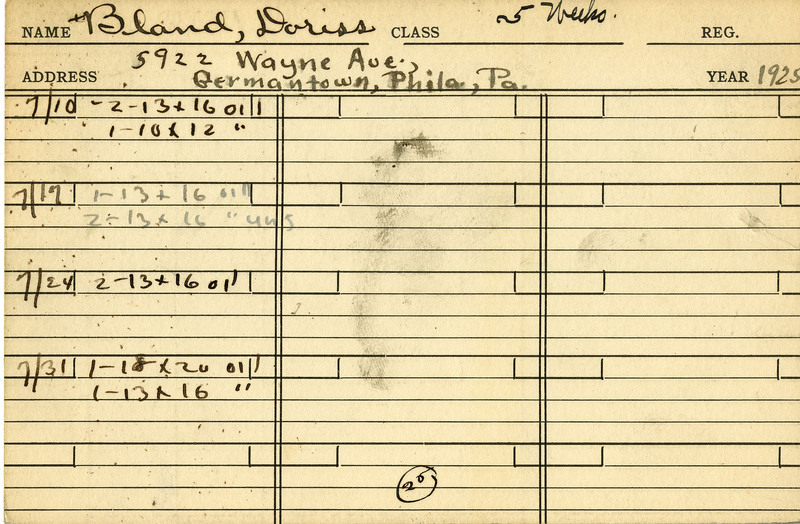 NAME Bland, Doriss CLASS 5 Weeks. REG.
5922 Wayne Ave.,
ADDRESS Germantown, Phila, Pa. YEAR 1925
7/10 - 2-13x16 oil
1-10x12 "
7/17 1-13x16 oil
2-13x16 " uns
7/24 2-13x16 oil
7/31 1-18x20 oil
1-13x16 "